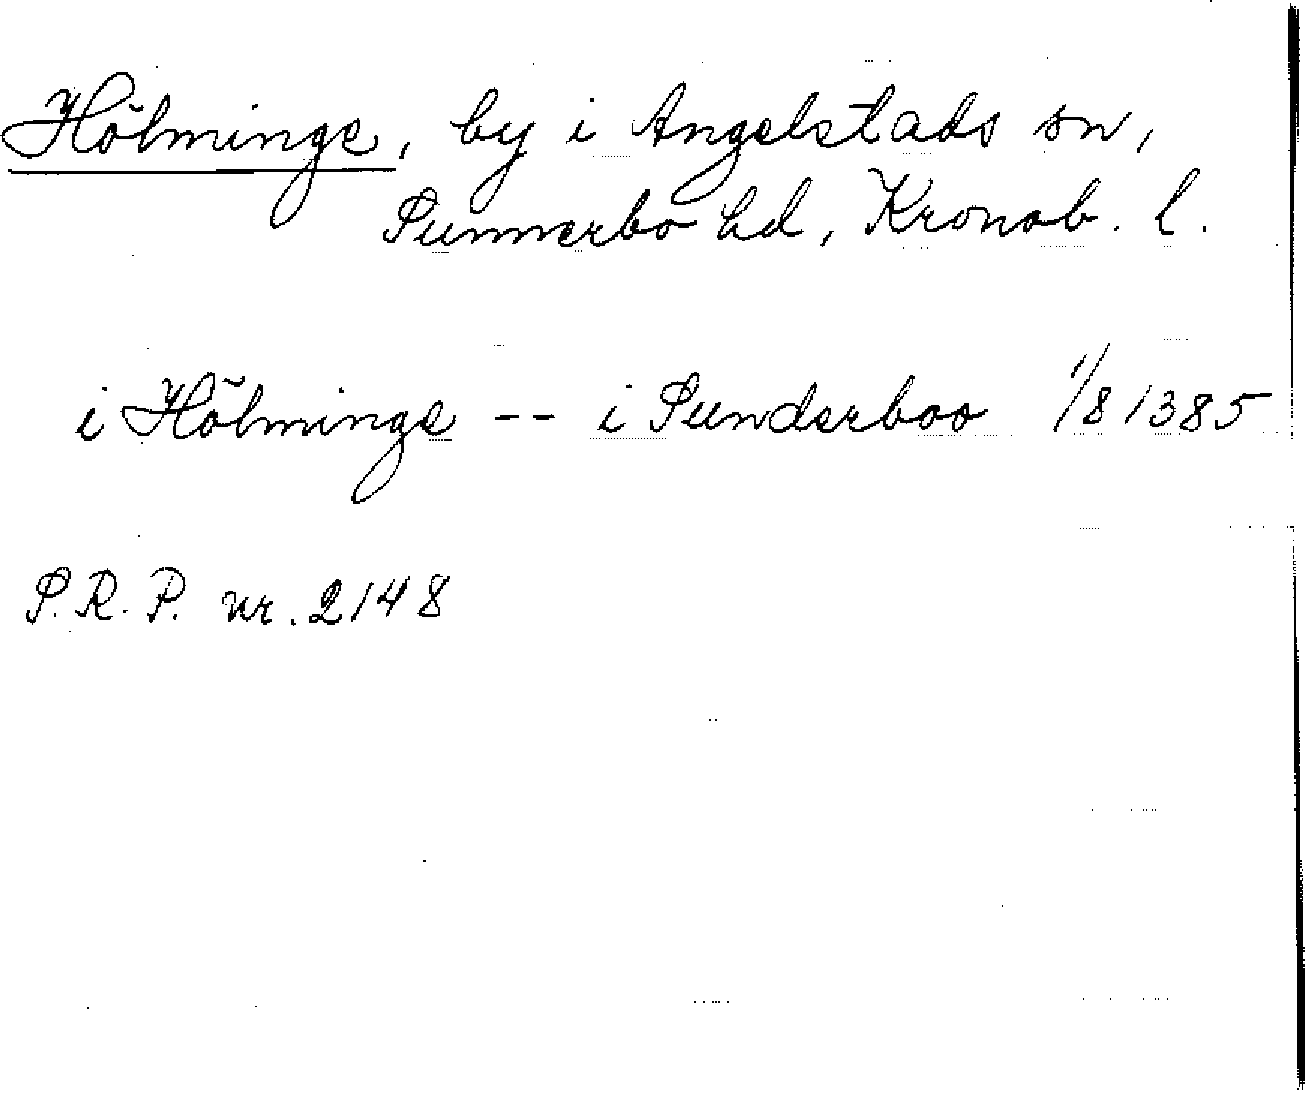 Hölminge, by i Angelstads sn,
Sunnerbo hd, Kronob. l.
i Hölminge -- i Sunderboo 1/8 1385
S.R.P. nr. 2148